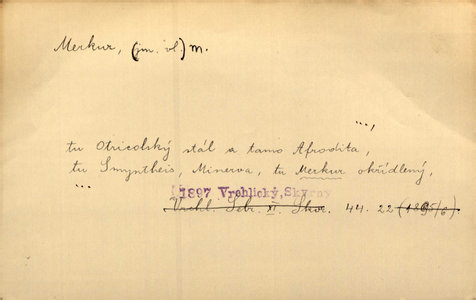 Merkur, (jm. vl.) m.
...,
tu Otricolský stál a tamo Afrodita,
tu Smyntheis, Minerva, tu Merkur okřídlený,
...
1897 Vrchlický, Skvrny
Vrchl. Sebr. XI. Skvr. 44. 22 (1895/6)